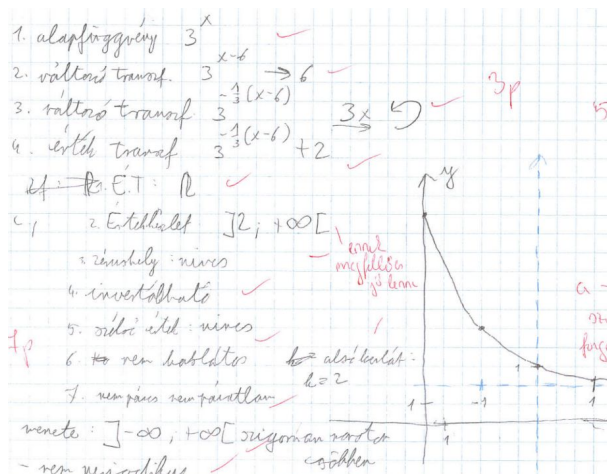 1. alapfüggvény 3^x
2. változó transf. 3^(x-6) → 6
3. változó transf 3^(-1/3(x-6)) 3x
4. érték transf 3^(-1/3(x-6)) + 2
3p
5
É.T: R
c,
2. Értékkészlet ]2; +∞[
ennek megfelelően jó lenne
3. zérushely: nincs
4. invertálható
5. szélső érték: nincs
7p
6. nem korlátos alsó korlát:
k=2
7. nem páros nem páratlan
menete: ]-∞, +∞[ szigorúan monoton
csökken
- nem periodikus
y
1
1
-1
1
1
a -